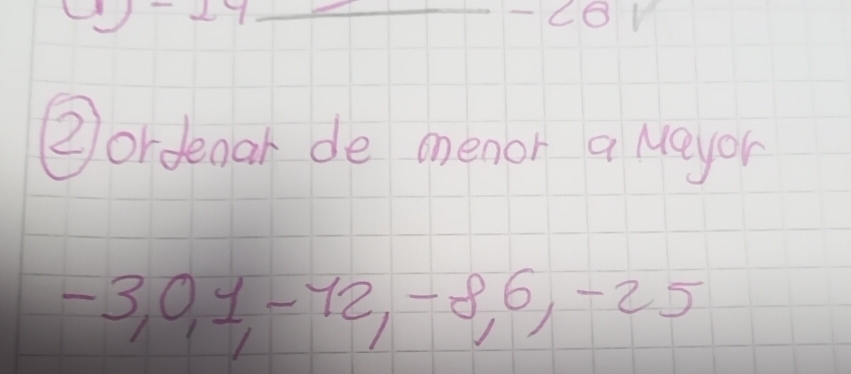 ② ordenar de menor a Mayor
-3, 0, 1, -12, -8, 6, -25